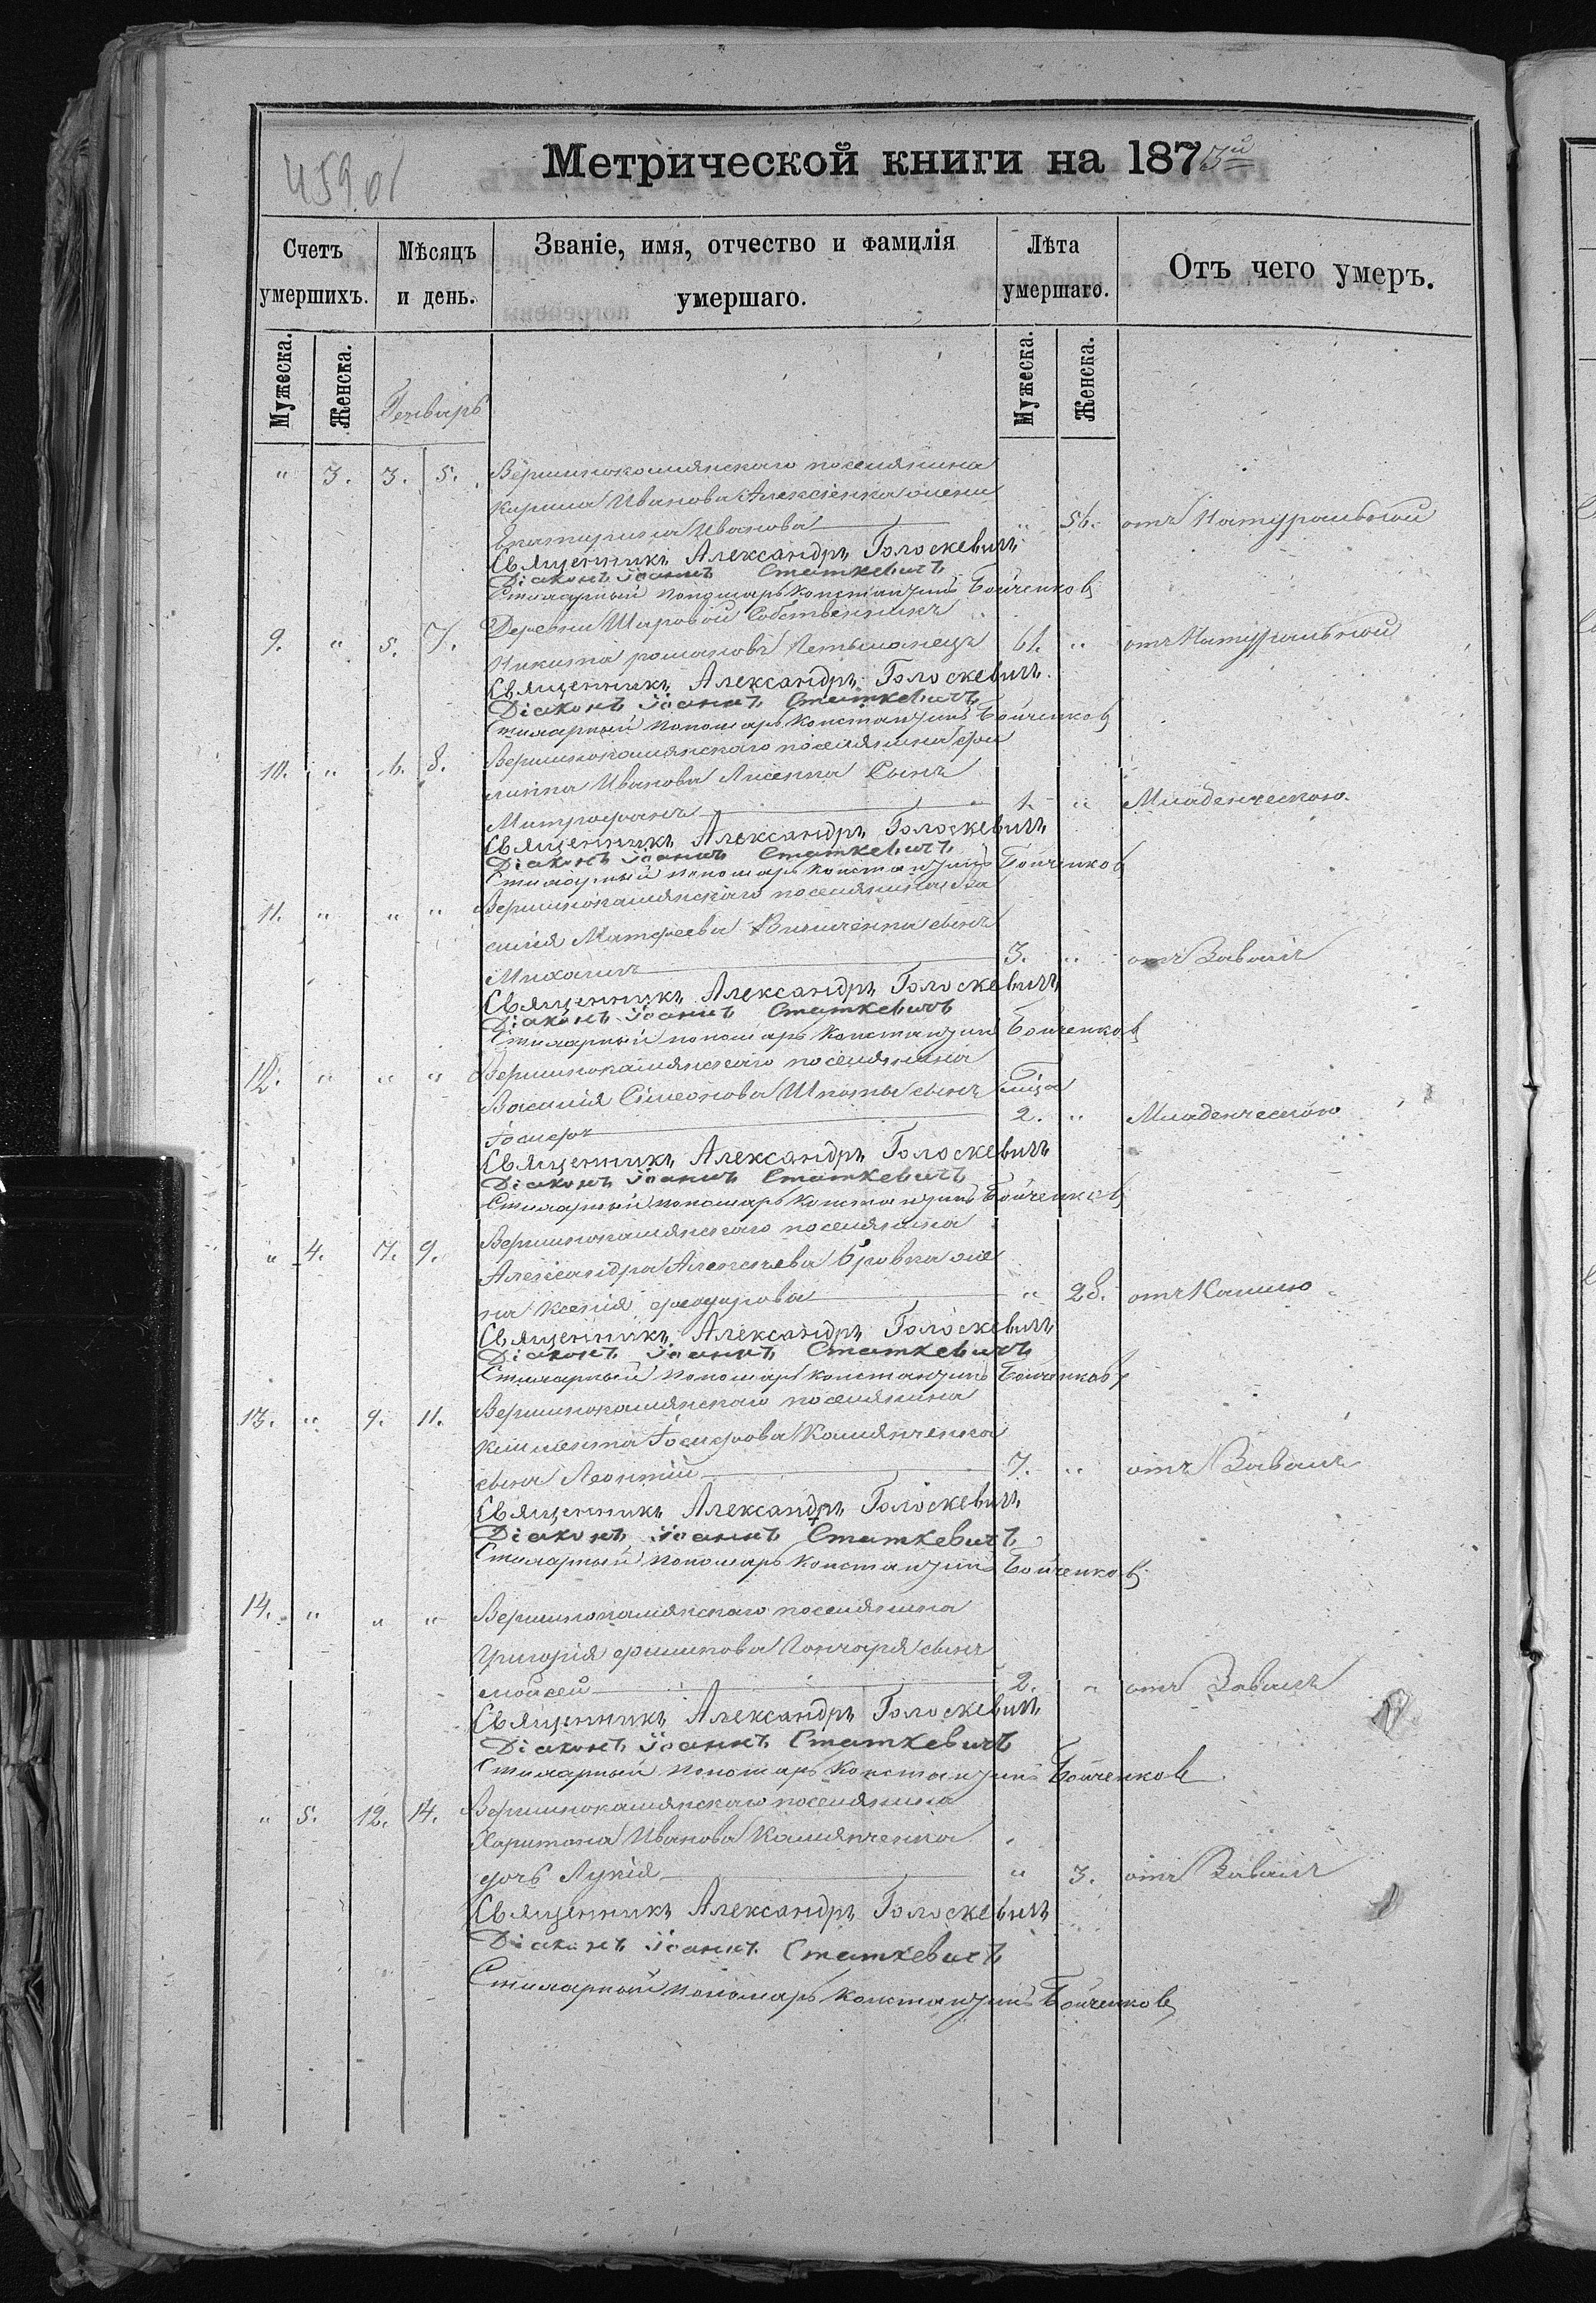 Метрической книги на 1873й
45901
Счетъ умершихъ. Мѣсяцъ и день. Званіе, имя, отчество и фамилія умершаго. Лѣта умершаго. Отъ чего умеръ.
Мужеска. Женска. Генварь Мужеска. Женска.
" 3. 3. 5. Вершинокамянскаго поселянина
Кирила Иванова Алексіенка жена
Екатерина Иванова " 56. отъ Натуральной
Священникъ Александръ Голоскевичъ
Діаконъ Іоаннъ Статкевичъ
Стихарный пономарь Константинъ Бойченковъ
9. " 5. 7. Деревни Шаровой Собственникъ
Никита Романовъ Гетьманецъ 61. " отъ Натуральной
Священникъ Александръ Голоскевичъ
Діаконъ Іоаннъ Статкевичъ
Стихарный пономарь Константинъ Бойченковъ
10. " 6. 8. Вершинокамянскаго поселянина Фи
липпа Иванова Лисенка Сынъ
Митрофанъ 1. " Младенческою.
Священникъ Александръ Голоскевичъ
Діаконъ Іоаннъ Статкевичъ
Стихарный пономарь Константинъ Бойченковъ
11. " " " Вершинокамянскаго поселянина Ва
силія Матфеева сынъ
Михаилъ 3. " отъ Завалъ
Священникъ Александръ Голоскевичъ
Діаконъ Іоаннъ Статкевичъ
Стихарный пономарь Константинъ Бойченковъ
12. " " " Вершинокамянскаго поселянина
Василія Сімеонова Шпоты сынъ
Іосифъ 2. " Младенческою
Священникъ Александръ Голоскевичъ
Діаконъ Іоаннъ Статкевичъ
Стихарный пономарь Константинъ Бойченковъ
" 4. 7. 9. Вершинокамянскаго поселянина
Александра Алексіева Бровка же
на Ксенія Феодорова " 28. отъ Кашлю
Священникъ Александръ Голоскевичъ
Діаконъ Іоаннъ Статкевичъ
Стихарный пономарь Константинъ Бойченковъ
13. " 9. 11. Вершинокамянскаго поселянина
Климента Іосифова Камянченка
сынъ Леонтій 7. " отъ Завалъ
Священникъ Александръ Голоскевичъ
Діаконъ Іоаннъ Статкевичъ
Стихарный пономарь Константинъ Бойченковъ
14. " " " Вершинокамянскаго поселянина
Григорія Филипова Гончаря сынъ
Мойсей 2. " отъ Завалъ
Священникъ Александръ Голоскевичъ
Діаконъ Іоаннъ Статкевичъ
Стихарный пономарь Константинъ Бойченковъ
" 5. 12. 14. Вершинокамянскаго поселянина
Харитона Иванова Камянченка
дочь Лукія " 3. отъ Завалъ
Священникъ Александръ Голоскевичъ
Діаконъ Іоаннъ Статкевичъ
Стихарный пономарь Константинъ Бойченковъ